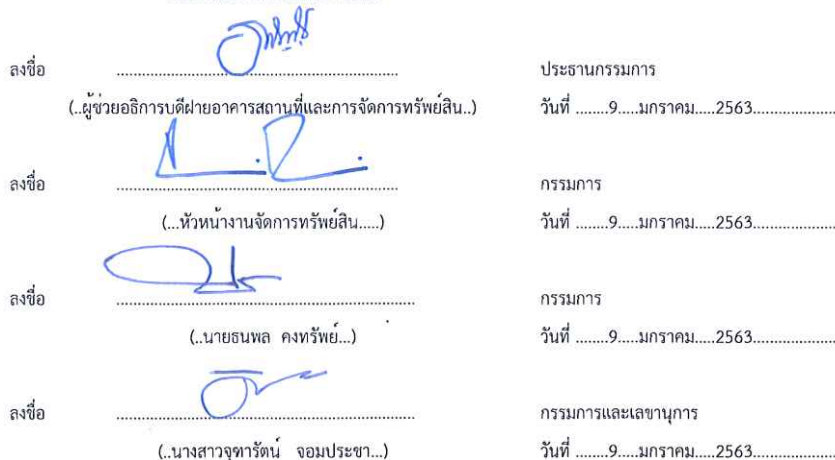 ลงชื่อ ........................................ ประธานกรรมการ
(..ผู้ช่วยอธิการบดีฝ่ายอาคารสถานที่และการจัดการทรัพย์สิน..) วันที่ ........9.....มกราคม.....2563..................
ลงชื่อ ........................................ กรรมการ
(...หัวหน้างานจัดการทรัพย์สิน.....) วันที่ ........9.....มกราคม.....2563..................
ลงชื่อ ........................................ กรรมการ
(..นายธนพล คงทรัพย์...) วันที่ ........9.....มกราคม.....2563..................
ลงชื่อ ........................................ กรรมการและเลขานุการ
(..นางสาวจุฑารัตน์ จอมประชา...) วันที่ ........9.....มกราคม.....2563..................